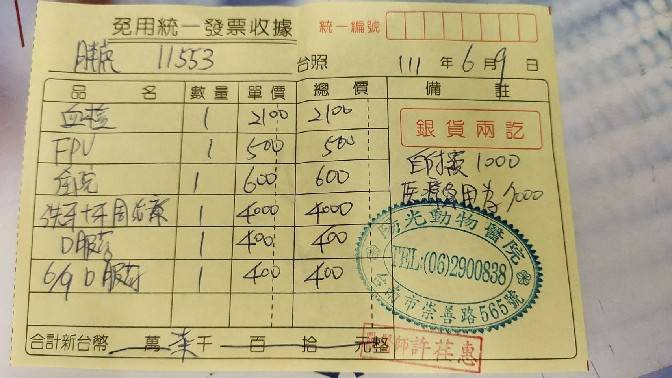 免用統一發票收據
統一編號
11553 台照 111年6月9日
品名 數量 單價 總價 備註
血檢 1 2100 2100
FPV 1 500 500
住院 1 600 600
洗牙+牙周治療 1 4000 4000
口服藥 1 400 400
6/9 口服藥 1 400 400
銀貨兩訖
1000
医療費用為7000
陽光動物醫院
TEL:(06)2900838
台南市崇善路565號
合計新台幣 萬 柒仟 百 拾 元整
師許荏惠